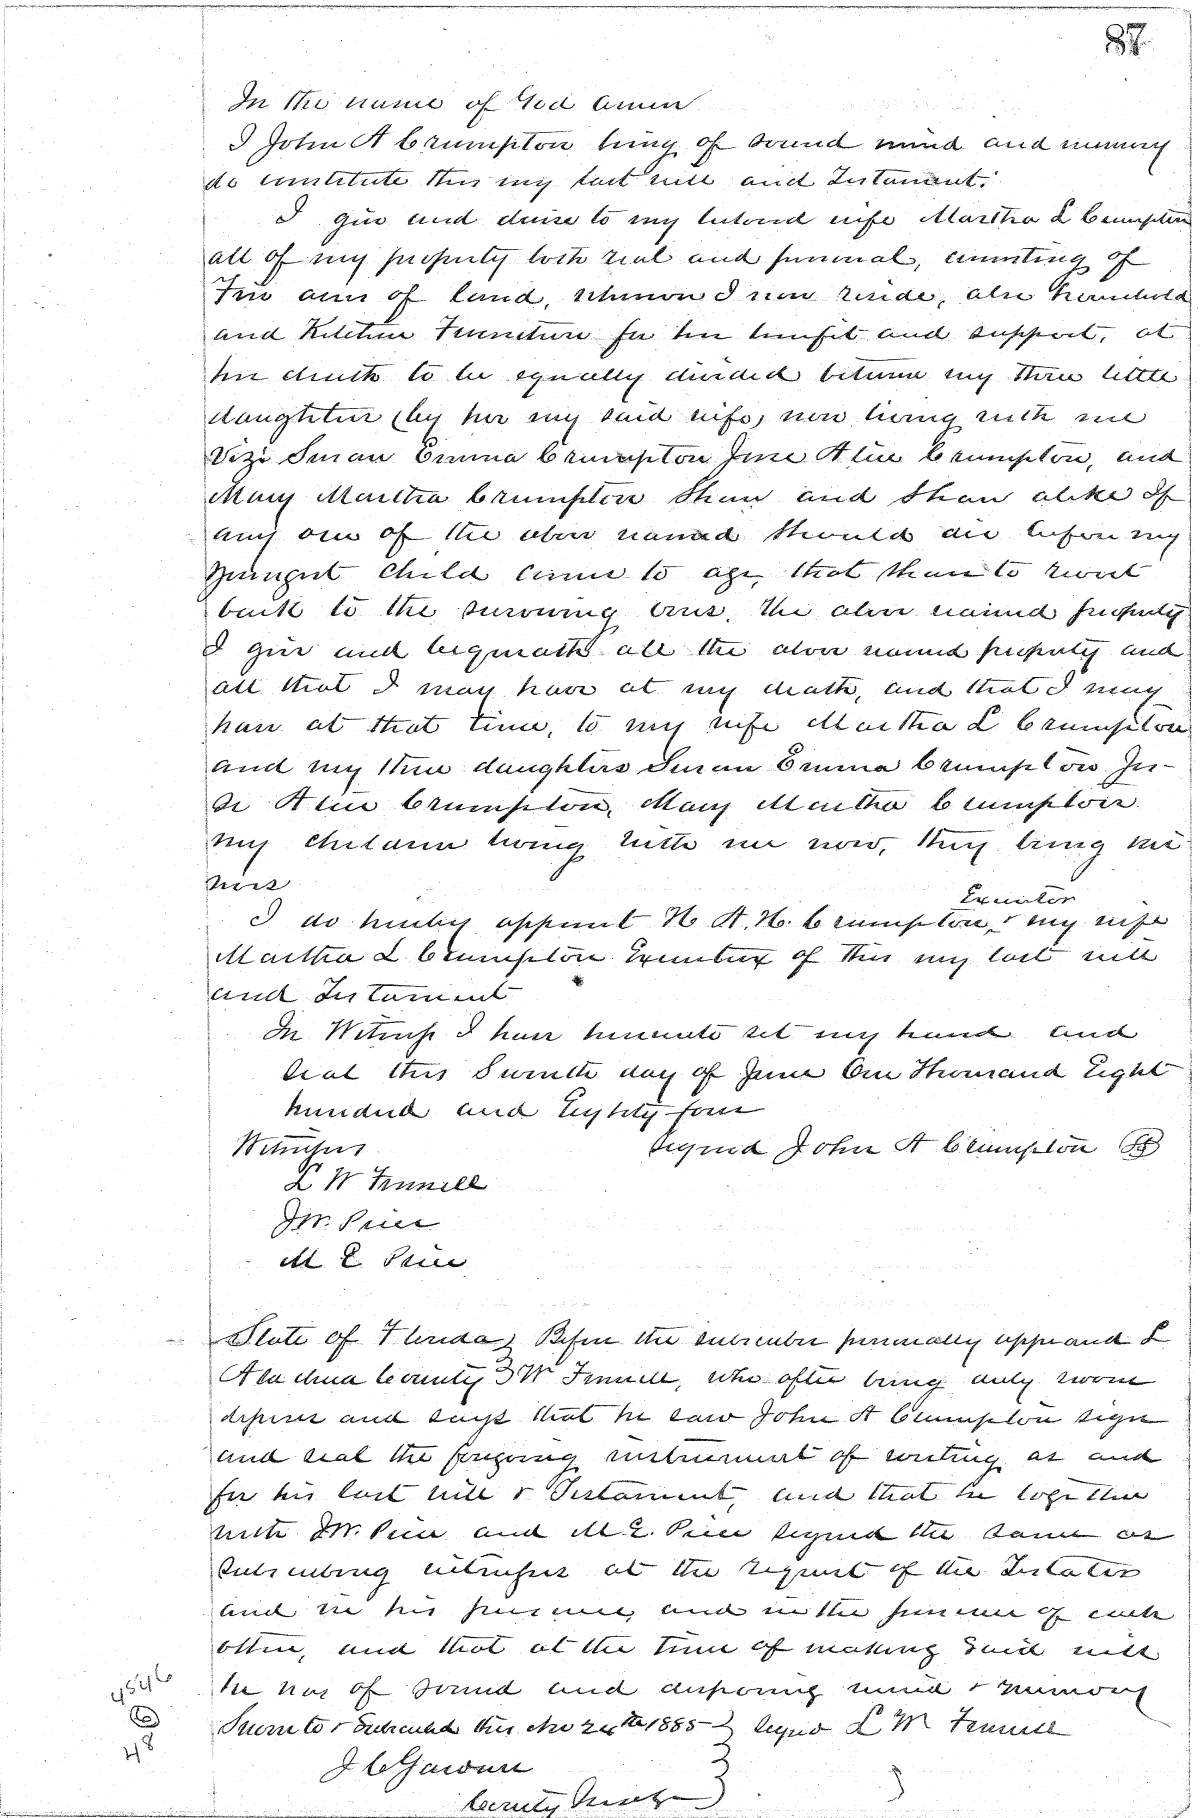 87
In the name of God amen
I John A Crumpton being of sound mind and memory
do constitute this my last will and Testament.
I give and devise to my beloved wife Martha L Crumpton
all of my property both real and personal, consisting of
acres of land, whereon I now reside, also household
and Kitchen Furniture for her benefit and support, at
her death to be equally divided between my three little
daughters (by her my said wife) now living with me
Viz: Susan Emma Crumpton Alice Crumpton, and
Mary Martha Crumpton Share and Share alike If
any one of the above named Should die before my
youngest Child comes to age, that share to revert
back to the surviving ones. The above named property
I give and bequeath all the above named property and
all that I may have at my death, and that I may
have at that time, to my wife Martha L Crumpton
and my three daughters Susan Emma Crumpton
Alice Crumpton, Mary Martha Crumpton
my children living with me now, they being mi-
nors
Executor
I do hereby appoint H A. H. Crumpton, & my wife
Martha L Crumpton Executrix of this my last will
and Testament
In Witness I have hereunto set my hand and
seal this Seventh day of June One Thousand Eight
hundred and Eighty four
Witnesses Signed John A Crumpton
L W Fennell
J W. Price
M E Price
State of Florida } Before the subscriber personally appeared L
Alachua County } W Fennell, who after being duly sworn
deposes and says that he saw John A Crumpton sign
and seal the foregoing instrument of writing as and
for his last will & Testament, and that he together
with J W. Price and M. E. Price signed the same as
subscribing witnesses at the request of the Testator
and in his presence, and in the presence of each
other, and that at the time of making said will
he was of sound and disposing mind & memory
Sworn to & Subscribed this 24th 1885 } Signed L W Fennell
4546
6
48
J C Gardner
County Judge }